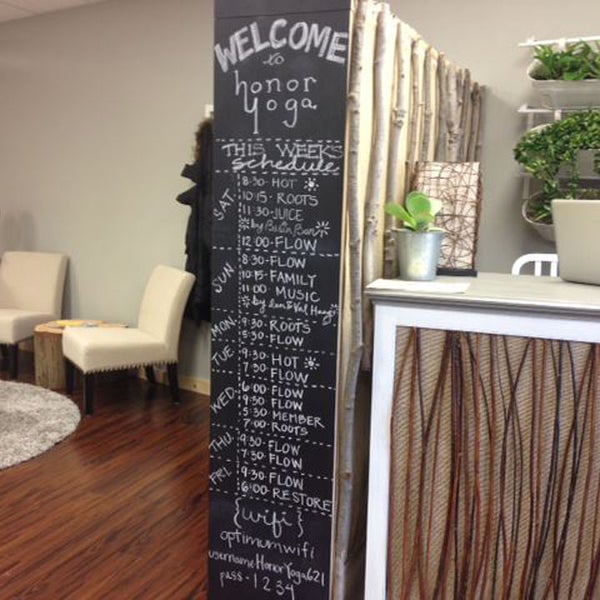 WELCOME
to
honor
yoga
THIS WEEK'S
schedule
SAT.
8:30-HOT
10:15-ROOTS
11:30-JUICE
12:00-FLOW
SUN.
8:30-FLOW
10:15-FAMILY
11:00 MUSIC
MON.
9:30-ROOTS
5:30-FLOW
TUE.
9:30-HOT
7:30-FLOW
WED.
6:00-FLOW
9:30-FLOW
5:30-MEMBER
7:00-ROOTS
THU.
9:30-FLOW
7:30-FLOW
FRI.
9:30-FLOW
6:00-RESTORE
{wifi}
optimumwifi
usernameHonorYoga621
pass-1234